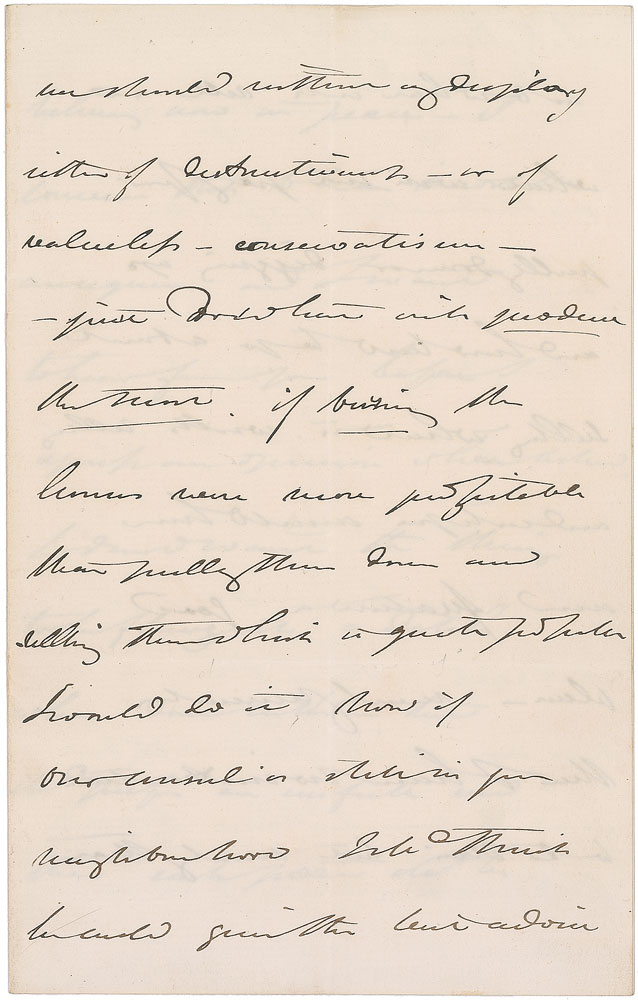 we should without any display
either of destructiveness – or of
valueless – conservatism –
– just do what will produce
the most. if burning the
houses were more profitable
than pulling them down and
selling them which is quite possible
I would do it Now if
our consul is still in your
neighbourhood I sh<sup>d</sup> think
he could give the best advice